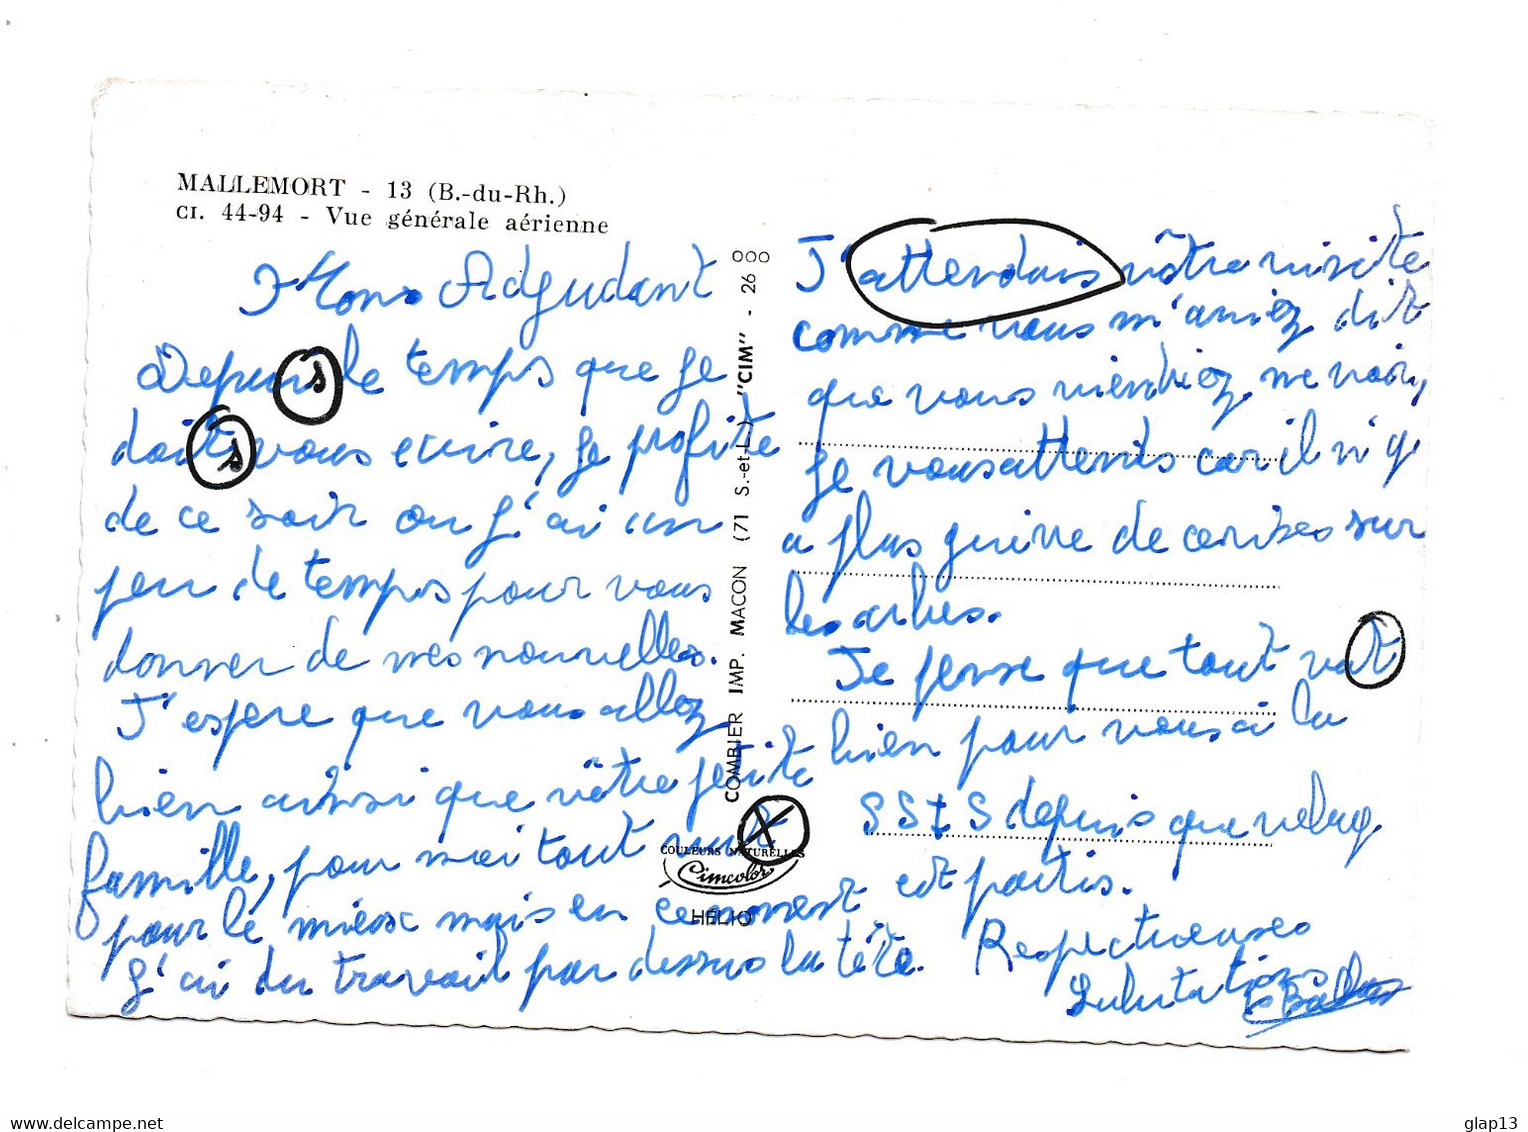 MALLEMORT - 13 (B.-du-Rh.)
CI. 44-94 - Vue générale aérienne
Mons Adgudant
Depuis le temps que je
doits vous ecrire, je profite
de ce soir ou j'ai un
peu de temps pour vous
donner de mes nouvelles.
J'espere que vous allez
bien ainsi que vôtre petite
famille, pour moi tout vat
pour le mieux mais en ce moment
j'ai du travail par dessus la tête.
COMBIER IMP. MACON (71 S.-et-L.) "CIM" - 26
COULEURS NATURELLES
Cimcolor
HELIO
J'attendais vôtre visite
comme vous m'aviez dit
que vous viendriez me voir,
je vous attends car il n'y
a plus guire de cerises sur
les arbres.
Je pense que tout vat
bien pour vous à la
SSIS depuis que
est partis.
Respectueuses
Salutations
glap13